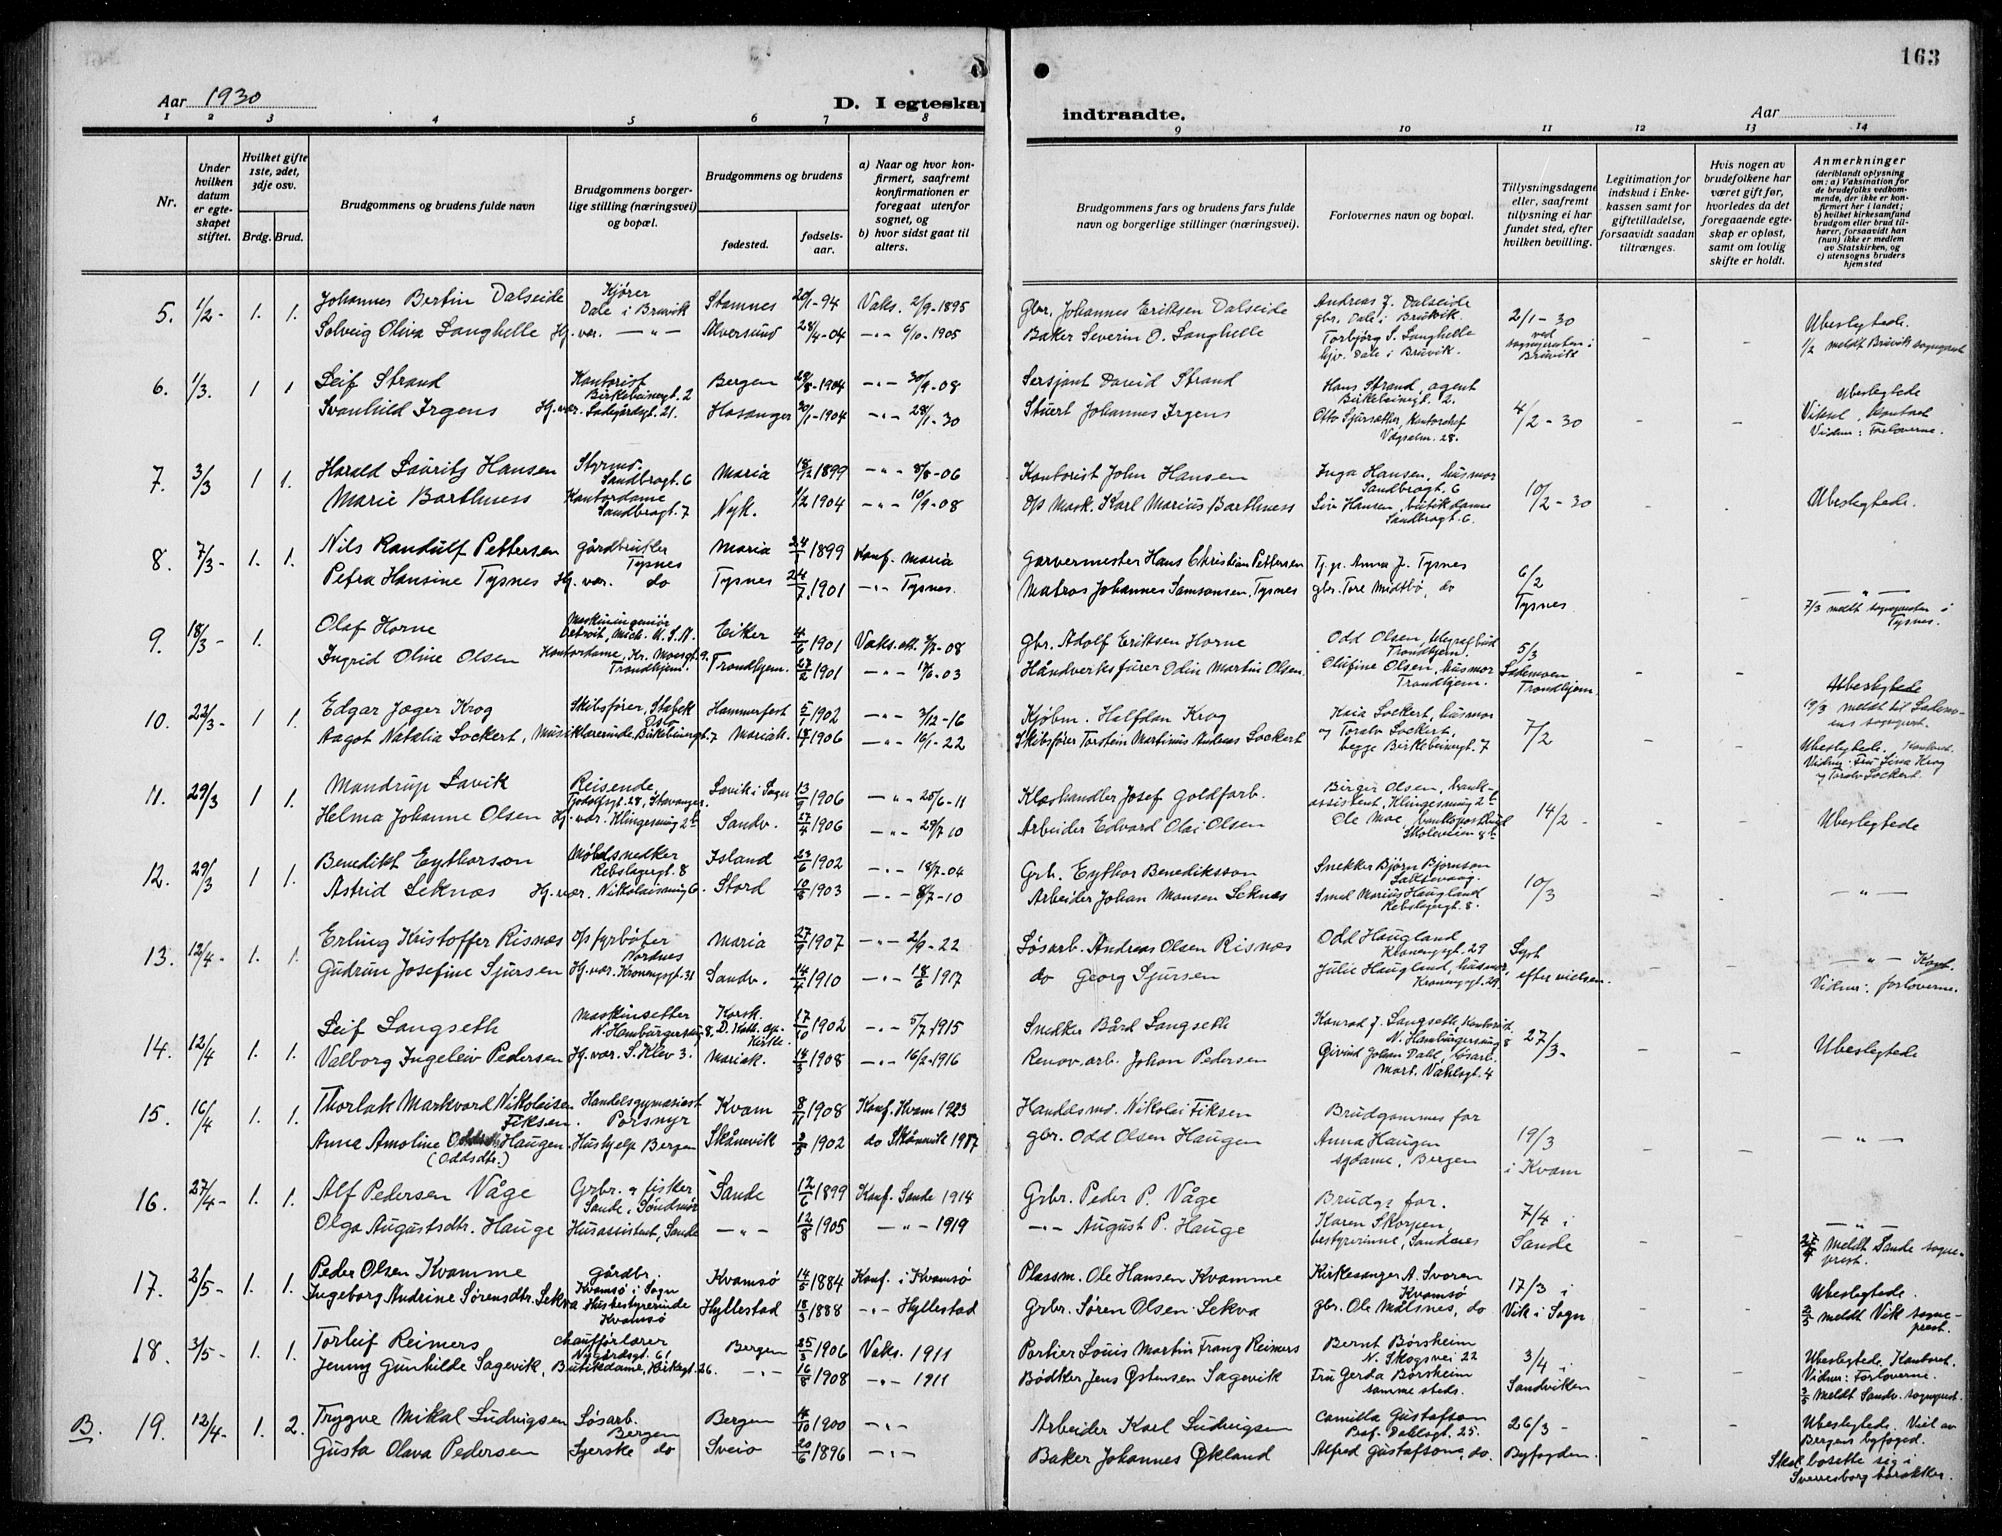 163
Aar 1930
D. I egteskap
indtraadte.
Aar
1 2 3 4 5 6 7 8 9 10 11 12 13 14
Nr.
Under hvilken datum er egteskapet stiftet.
Hvilket gifte 1ste, 2det, 3dje osv.
Brdg. Brud.
Brudgommens og brudens fulde navn
Brudgommens borgerlige stilling (næringsvei) og bopæl.
Brudgommens og brudens
fødested.
fødselsaar.
a) Naar og hvor konfirmert, saafremt konfirmationen er foregaat utenfor sognet, og
b) hvor sidst gaat til alters.
Brudgommens fars og brudens fars fulde navn og borgerlige stillinger (næringsvei).
Forlovernes navn og bopæl.
Tillysningsdagene eller, saafremt tillysning ei har fundet sted, efter hvilken bevilling.
Legitimation for indskud i Enkekassen samt for giftetilladelse, forsaavidt saadan tiltrænges.
Hvis nogen av brudefolkene har været gift før, hvorledes da det foregaaende egteskap er opløst, samt om lovlig skifte er holdt.
Anmerkninger (deriblandt oplysning om: a) Vaksination for de brudefolks vedkommende, der ikke er konfirmert her i landet; b) hvilket kirkesamfund brudgom eller brud tilhører, forsaavidt han (hun) ikke er medlem av Statskirken, og c) utensogns bruders hjemsted
5. 1/2- 1. 1. Johannes Bertin Dalseide Kjører Dale i Bruvik Stamnes 20/1-94 Vaks. 2/9-1895 Gbr. Johannes Eriksen Dalseide Andreas J. Dalseide gbr. Dale i Bruvik. 2/1-30 ved sognepresten i Bruvik Ubeslegtede.
Solveig Oliva Langhelle Hj. vær. —"— Alversund 28/4-04 —"— 6/10-1905 Baker Severin O. Langhelle Torbjørg S. Langhelle hjv. Dale i Bruvik. 1/2 meldt Bruvik sogneprest
6. 1/3. 1 1 Leif Strand Kontorist Birkebeinegt. 2 Bergen 29/8-1904 —"— 30/9-08 Sersjant David Strand Hans Strand, agent Birkebeinegt. 2. 4/2-30 Ubeslegtede
Svanhild Irgens Hj. vær. Ladegårdsgt. 21. Hosanger 30/1-1904 —"— 28/1-30 Stuert Johannes Irgens Otto Sjursæther, Kontorchef 28. Viksel, Kontoret Vidner: Forloverne.
7. 3/3 1 1. Harald Lauritz Hansen Styrmd. Sandbrogt. 6 Maria 18/12 1899 —"— 8/8-06 Kontorist John Hansen Inga Hansen, husmor Sandbrogt. 6 10/2-30 Ubeslegtede.
Marie Barthness Kontordame Sandbrogt. 7 Nyk. 1/2 1904 —"— 10/9-08 D/s Mask. Karl Marius Barthness Liv Hansen, butikdame Sandbrogt. 6.
8. 7/3- 1. 1. Nils Randulf Pettersen gårdbruker Tysnes Maria 24/1 1899 Konf. Maria Garvermester Hans Christian Pettersen Tj. p. Anna J. Tysnes 6/2 Tysnes —"—
Petra Hansine Tysnes Hj. vær. do Tysnes 24/7 1901 —"— Tysnes. Matros Johannes Samsonsen, Tysnes gbr. Tore Midtbø, do 7/3 meldt sognepresten i Tysnes.
9. 18/3- 1. Olaf Horne Maskiningeniør Detroit, Mich. U.S.A. Eiker 4/6 1901 Vaks. att. 3/7-08 Gbr. Adolf Eriksen Horne Odd Olsen, telegrafbud Trondhjem. 5/3 Lademoen Trondhjem.
Ingrid Oline Olsen Kontordame, Kr. Monsgt. 9. Trondhjem. Trondhjem. 27/2 1901 —"— 17/6-03 Håndverksfører Odin Martin Olsen. Olufine Olsen, husmor Trondhjem. Ubeslegtede 19/3 meldt til Lademoens sogneprest.
10. 22/3- 1 1. Edgar Jæger Krog Skibsfører, Stabekk Oslo Hammerfest 5/1 1902 —"— 3/12-16 Kjøbm. Halfdan Krog Kaia Lockert, husmor og Toralv Lockert, begge Birkebeinegt. 7 7/2
Aagot Natalia Lockert, Musiklærerinde, Birkebeinegt. 7 Mariak. 18/7 1906 —"— 16/1-22 Skibsfører Torstein Martinus Andreas Lockert Ubeslegtede. Kontoret. Vidner: Fru Lina Krog og Toralv Lockert.
11. 29/3 1 1. Mandrup Lavik Reisende, Tjodolfsgt. 28, Stavanger. Lavik i Sogn 13/9 1906 —"— 25/6-11 Klæshandler Josef Goldfarb. Birger Olsen, bankassistent, Klingesmug 2b 14/2- Ubeslegtede
Helma Johanne Olsen Hj. vær. Klingesmug 2b Sandv. 27/4 1906 —"— 29/7 10 Arbeider Edvard Olai Olsen Ole Moe, Skoleveien 8b
12. 29/3 1 1. Benedikt Eythorson Møbelsnedker Rebslagergt. 8 Island 23/6 1902 —"— 18/7-04 Grb. Eythor Benediksson Snekker Bjørn Bjørnson Laksevaag. 10/3 —"—
Astrid Seknæs Hj. vær. Nikolaismug 6. Stord 10/8 1903 —"— 8/7-10 Arbeider Johan Monsen Seknæs Smed Marius Haugland Rebslagergt. 8.
13. 12/4- 1. 1. Erling Kristoffer Risnæs D/s fyrbøter Nordnes Maria 27/9 1907 —"— 2/9-22 Løsarb. Andreas Olsen Risnæs Odd Haugland Kroneng​sgt. 29 Lyst efter vielsen. —"— Kont.
Gudrun Josefine Sjursen Hj. vær. Krone​ngsgt. 31 Sandv. 14/4 1910 —"— 18/6 1917 do Georg Sjursen Julie Haugland, husmor, Kronengsgt. 29 Vidner: forloverne.
14. 12/4 1. 1. Leif Langseth Maskinsetter N. Hamburgersmug 8. Korsk. D. Kath. ap. Kirke. 17/10 1902 —"— 5/7-1915 Snedker Bård Langseth Konrad J. Langseth, Kontorist. N. Hamburgersmug 8 27/3- Ubeslegtede
Valborg Ingeleiv Pedersen Hj. vær. S. Klev 3. Mariak. 14/3 1908 —"— 16/2-1916 Renov. arb. Johan Pedersen Eivind Johan Dahl, løsarb. Mart. Vahlsgt. 4
15. 16/4 1. 1. Thorlak Markvard Nikolaisen Fiksen. Handelsgymnasiast Porsnyr Kvam 8/11 1908 Konf. Kvam 1923 Handelsmd. Nikolai Fiksen Brudgommens far 19/3 i Kvam —"—
Anna Amoline Haugen (Oddsdtr.) Hushjelp Bergen Skånevik 3/3 1902 do Skånevik 1917 gbr. Odd Olsen Haugen Anna Haugen sydame, Bergen
16. 27/4- 1. 1. Alf Pedersen Våge Grbr. og fisker Sande, Söndmör Sande 12/6 1899 Konf. Sande 1914 Grbr. Peder P. Våge Brudgs far. 7/4 i Sande —"—
Olga Augustsdtr. Hauge Husassistent, Sande —"— 12/8 1905 —"— 1919 —"— August P. Hauge Karen Skorpen, bestyrerinne, Sandnes 27/4 Meldt Sande sogneprest.
17. 2/5- 1. 1. Peder Olsen Kvamme Gårdbr. Kvamsö i Sogn Kvamsö 14/5 1884 Konf. i Kvamsö Plassm. Ole Hansen Kvamme Kirkesanger A. Svoren Kvamsö 17/3 i Vik i Sogn Ubeslegtede.
Ingeborg Andrine Sørensdtr. Sekva Husbestyrerinde Kvamsö Hyllestad 18/3 1888 —"— Hyllestad Grbr. Søren Olsen Sekva gbr. Ole Målsnes, do 2/5 Meldt Vik sogneprest.
18. 3/5- 1. 1. Torleif Reimers Chaufførlærer Nygårdsgt. 61 Bergen 25/3 1906 Vaks. 1911 Portier Louis Martin Franz Reimers Bernt Børsheim N. Skogsvei 22 3/4 i Sandviken Ubeslegtede. Kontoret. Vidner: Forloverne.
Jenny Gunhilde Sagevik, Butikdame, Kirkegt. 26. —"— 16/8 1908 —"— 1911 Bødker Jens Østensen Sagevik Fru Gerda Børsheim samme steds. 3/5 Meldt Sandv. sogneprest.
B. 19. 12/4- 1. 2. Trygve Mikal Ludvigsen Løsarb. Bergen Bergen 4/10 1900 —"— Arbeider Karl Ludvigsen Camilla Gustafson Prof. Dahlsgt. 25. 26/3- Byfogden. Ubeslegtede. Viel av Bergens byfoged.
Gusta Olava Pedersen Syerske do Sveio 20/6 1896 —"— Baker Johannes Økland Alfred Gustafsons, do. Skal bosette sig i Sverresborg barakker.